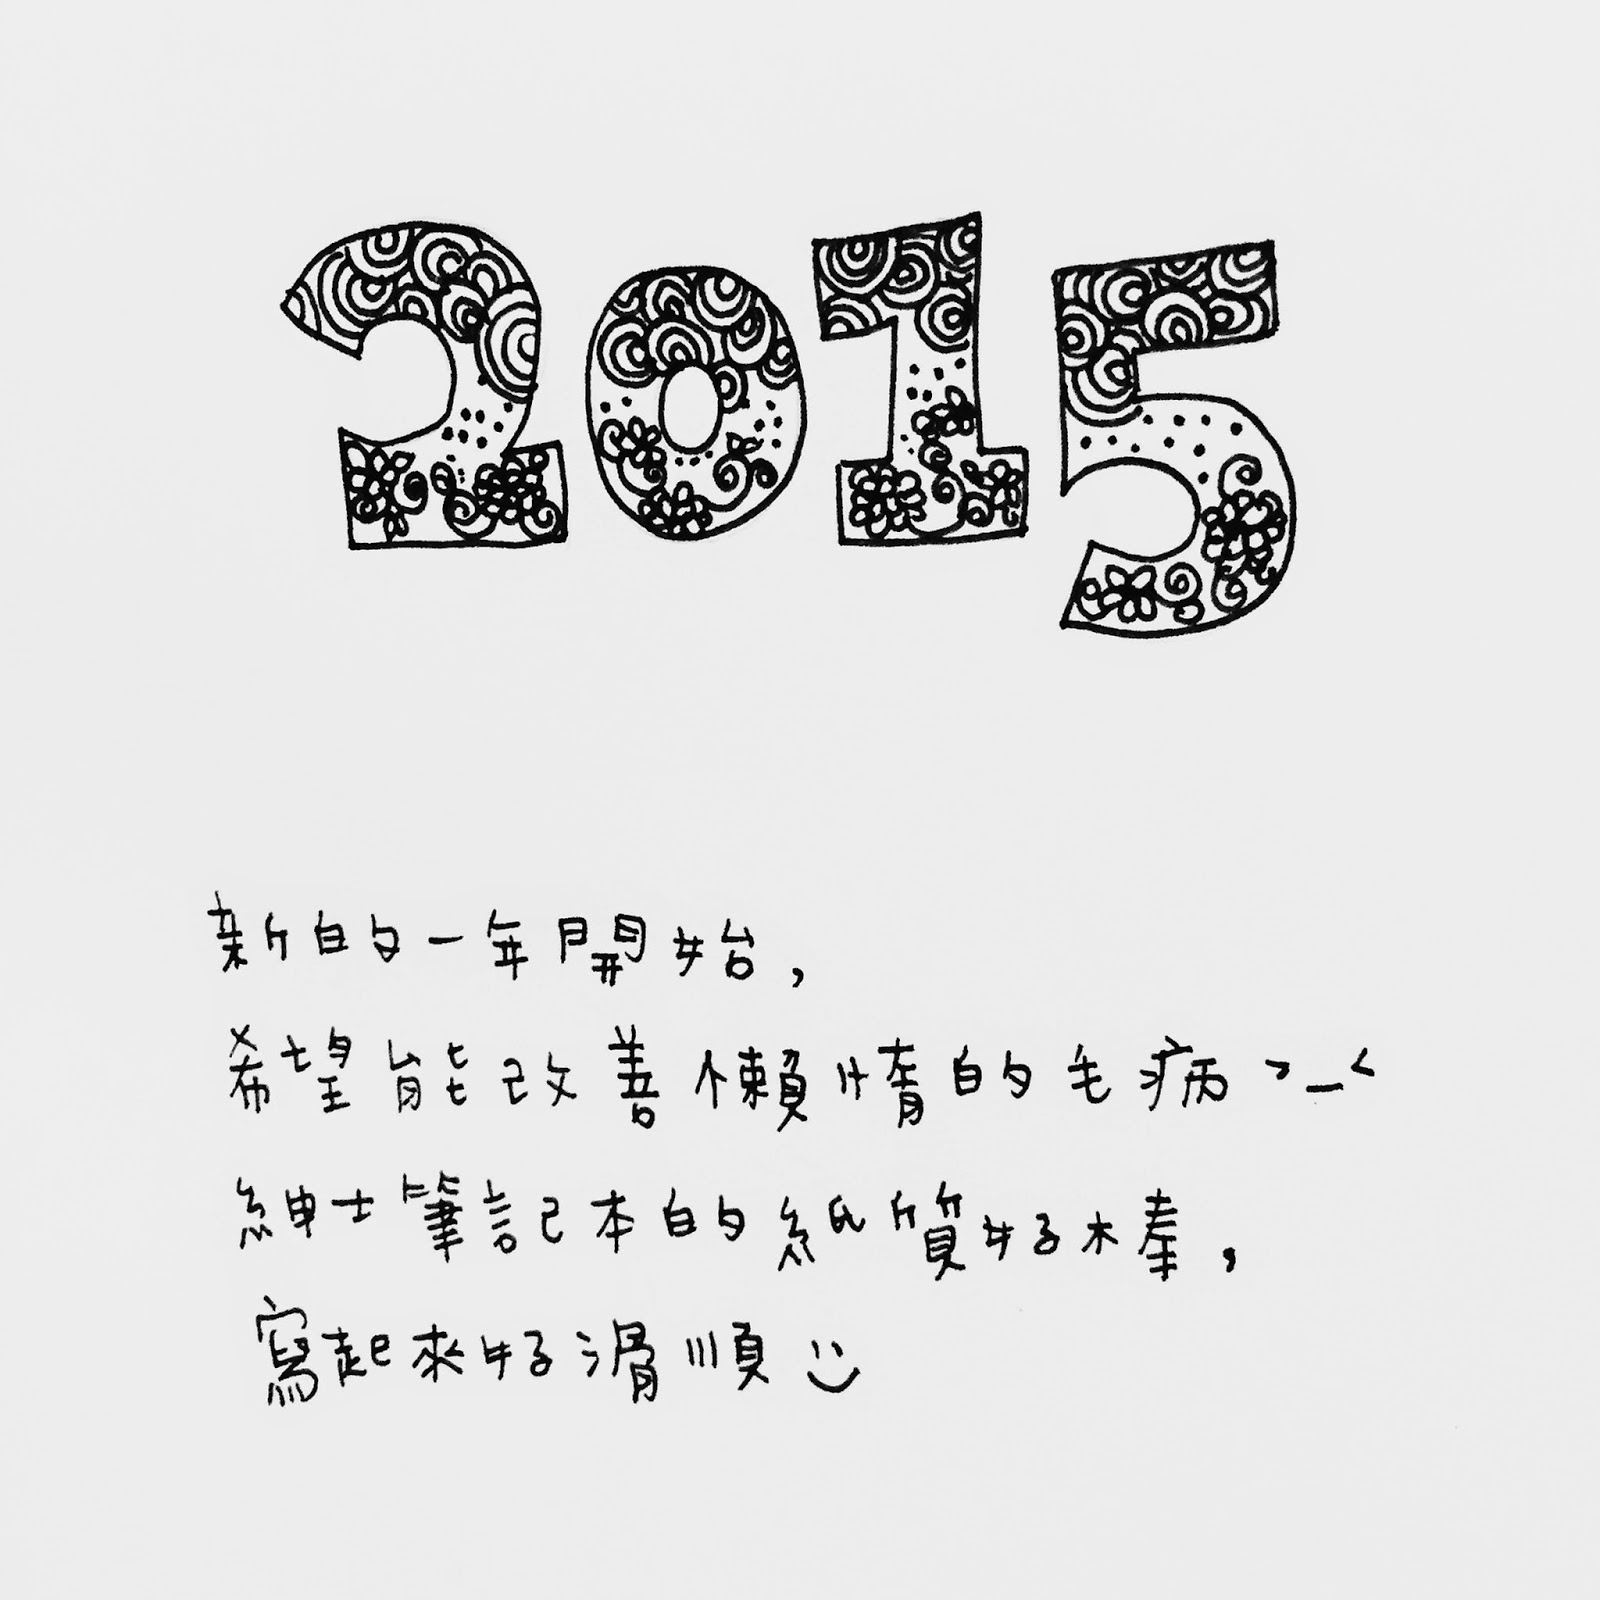 2015
新的一年開始,
希望能改善懶惰的毛病 >_<
紳士筆記本的紙質好棒,
寫起來好滑順 :)